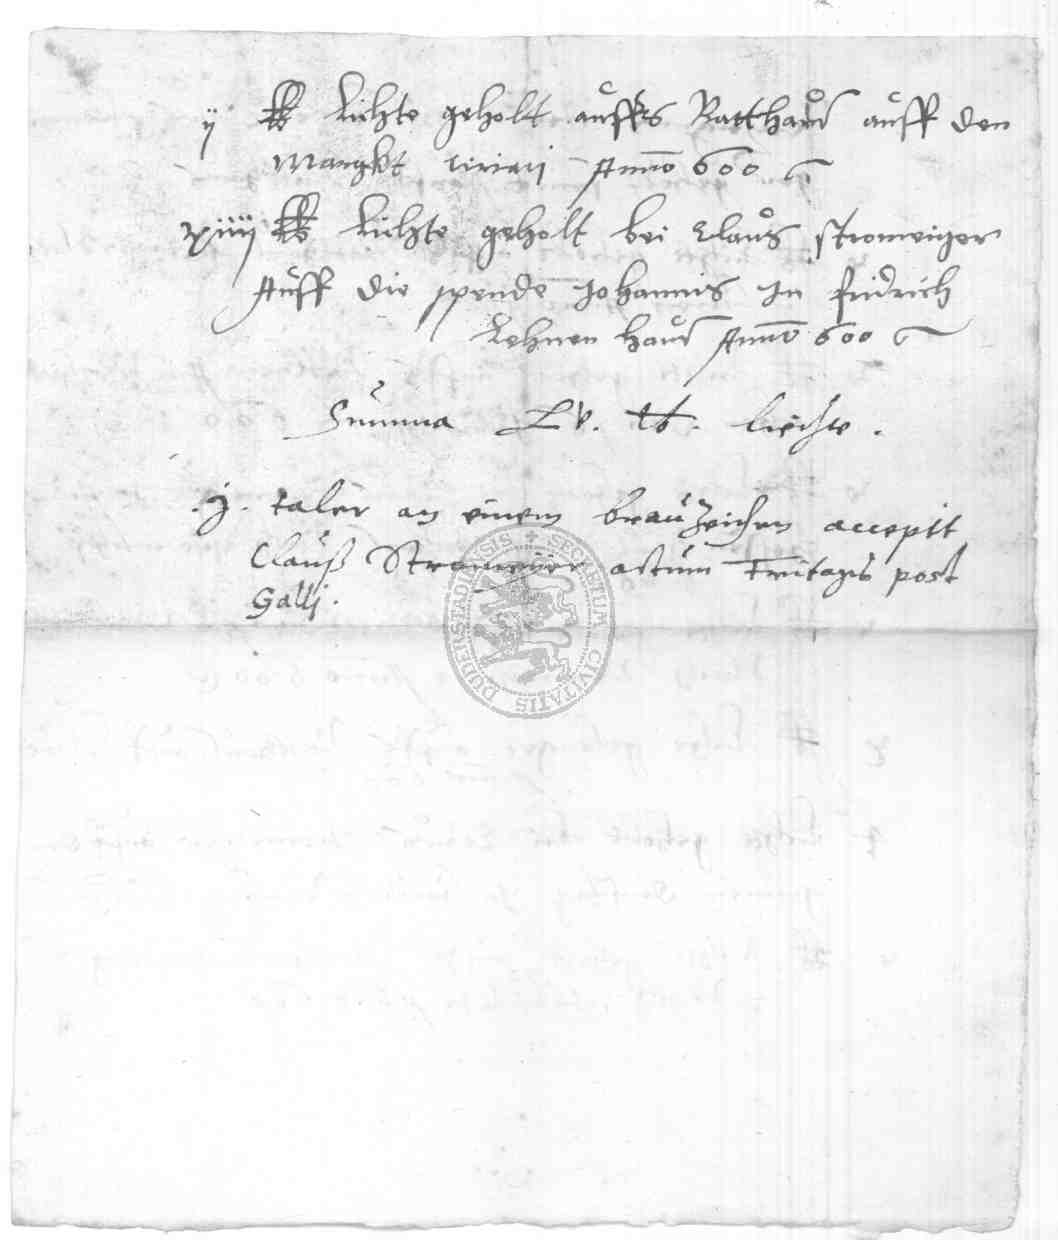 ij ℔ lichte geholt auffs Ratthauß auff den
Marckt ciriaci Anno 600
xiiij ℔ lichte geholt bei Claus stromeiger
Auff die spende Johannis In fridrich
Lehnen hauß Anno 600
Summa Lv. ℔. liechte.
.j. taler an einem brauzeichen accepit
Clauß Stromeyer actum Fritags post
Galli.
SECRETUM CIVITATIS DUDERSTADIENSIS